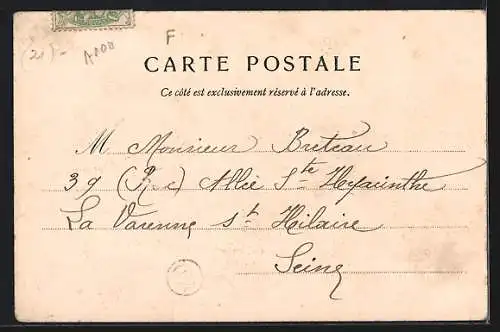 F
A100
CARTE POSTALE
Ce côté est exclusivement réservé à l'adresse.
M Monsieur Breteau
39 Allée Ste Hyacinthe
La Varenne St Hilaire
Seine